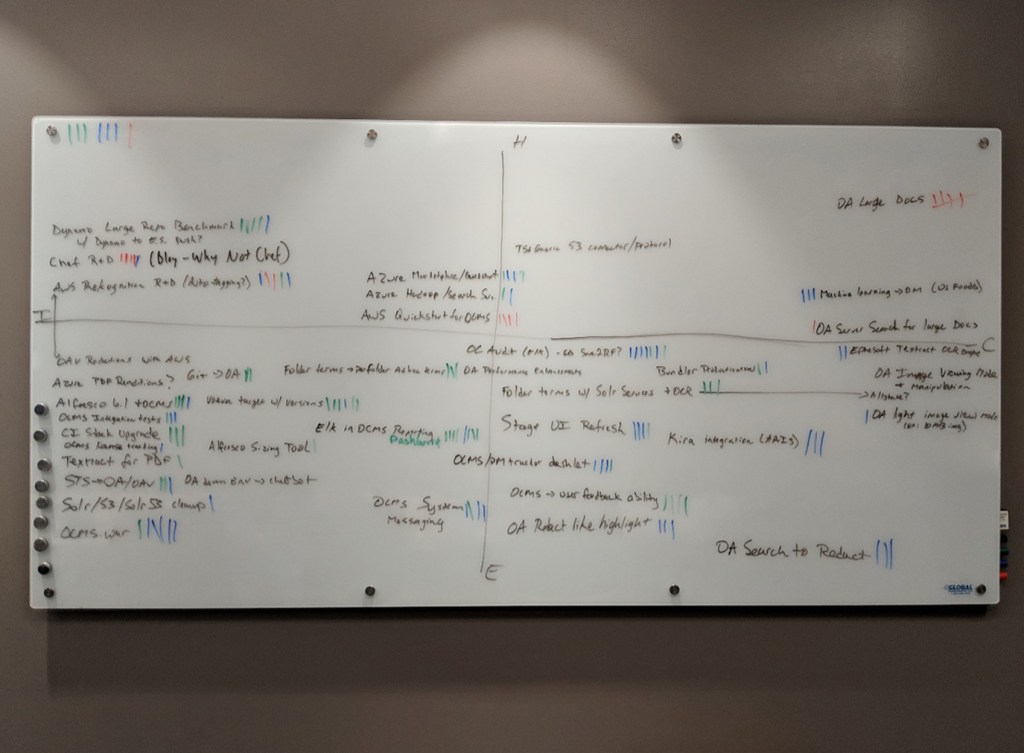 H
OA Large Docs
Dynamo Large Repo Benchmark
w/ Dynamo to E.S. Push?
S3 connector/Protocol
Chef R+D (Blog - Why Not Chef)
AWS Rekognition R+D (Auto-tagging?)
Azure Marketplace/Quickstart
Azure Hadoop/Search Svc.
AWS Quickstart for OCMS
Machine learning → DM (US Foods)
I
OA Server Search for large Docs
C
OC Audit
Ephesoft Textract OCR
OAV Redactions with AWS
Azure PDF Renditions?
Git → OA
Folder terms →
OA Performance Enhancements
OA Image Viewing Mode
+ Manipulation
Folder terms w/ Solr Services + OCR
Allstate?
Alfresco 6.1 + OCMS
target w/ versions
OCMS Integration tests
OA light image view mode
CI Stack Upgrade
OCMS license tracking
Alfresco Sizing Tool
Elk in OCMS Reporting
Dashboard
Stage UI Refresh
Kira Integration
Textract for PDF
OCMS/DM dashlet
STS → OA/OAV
OA demo Env → chatbot
Solr/S3/Solr S3 cleanup
OCMS System
Messaging
OCMS → user feedback ability
OCMS war
OA Redact like highlight
OA Search to Redact
E
GLOBAL